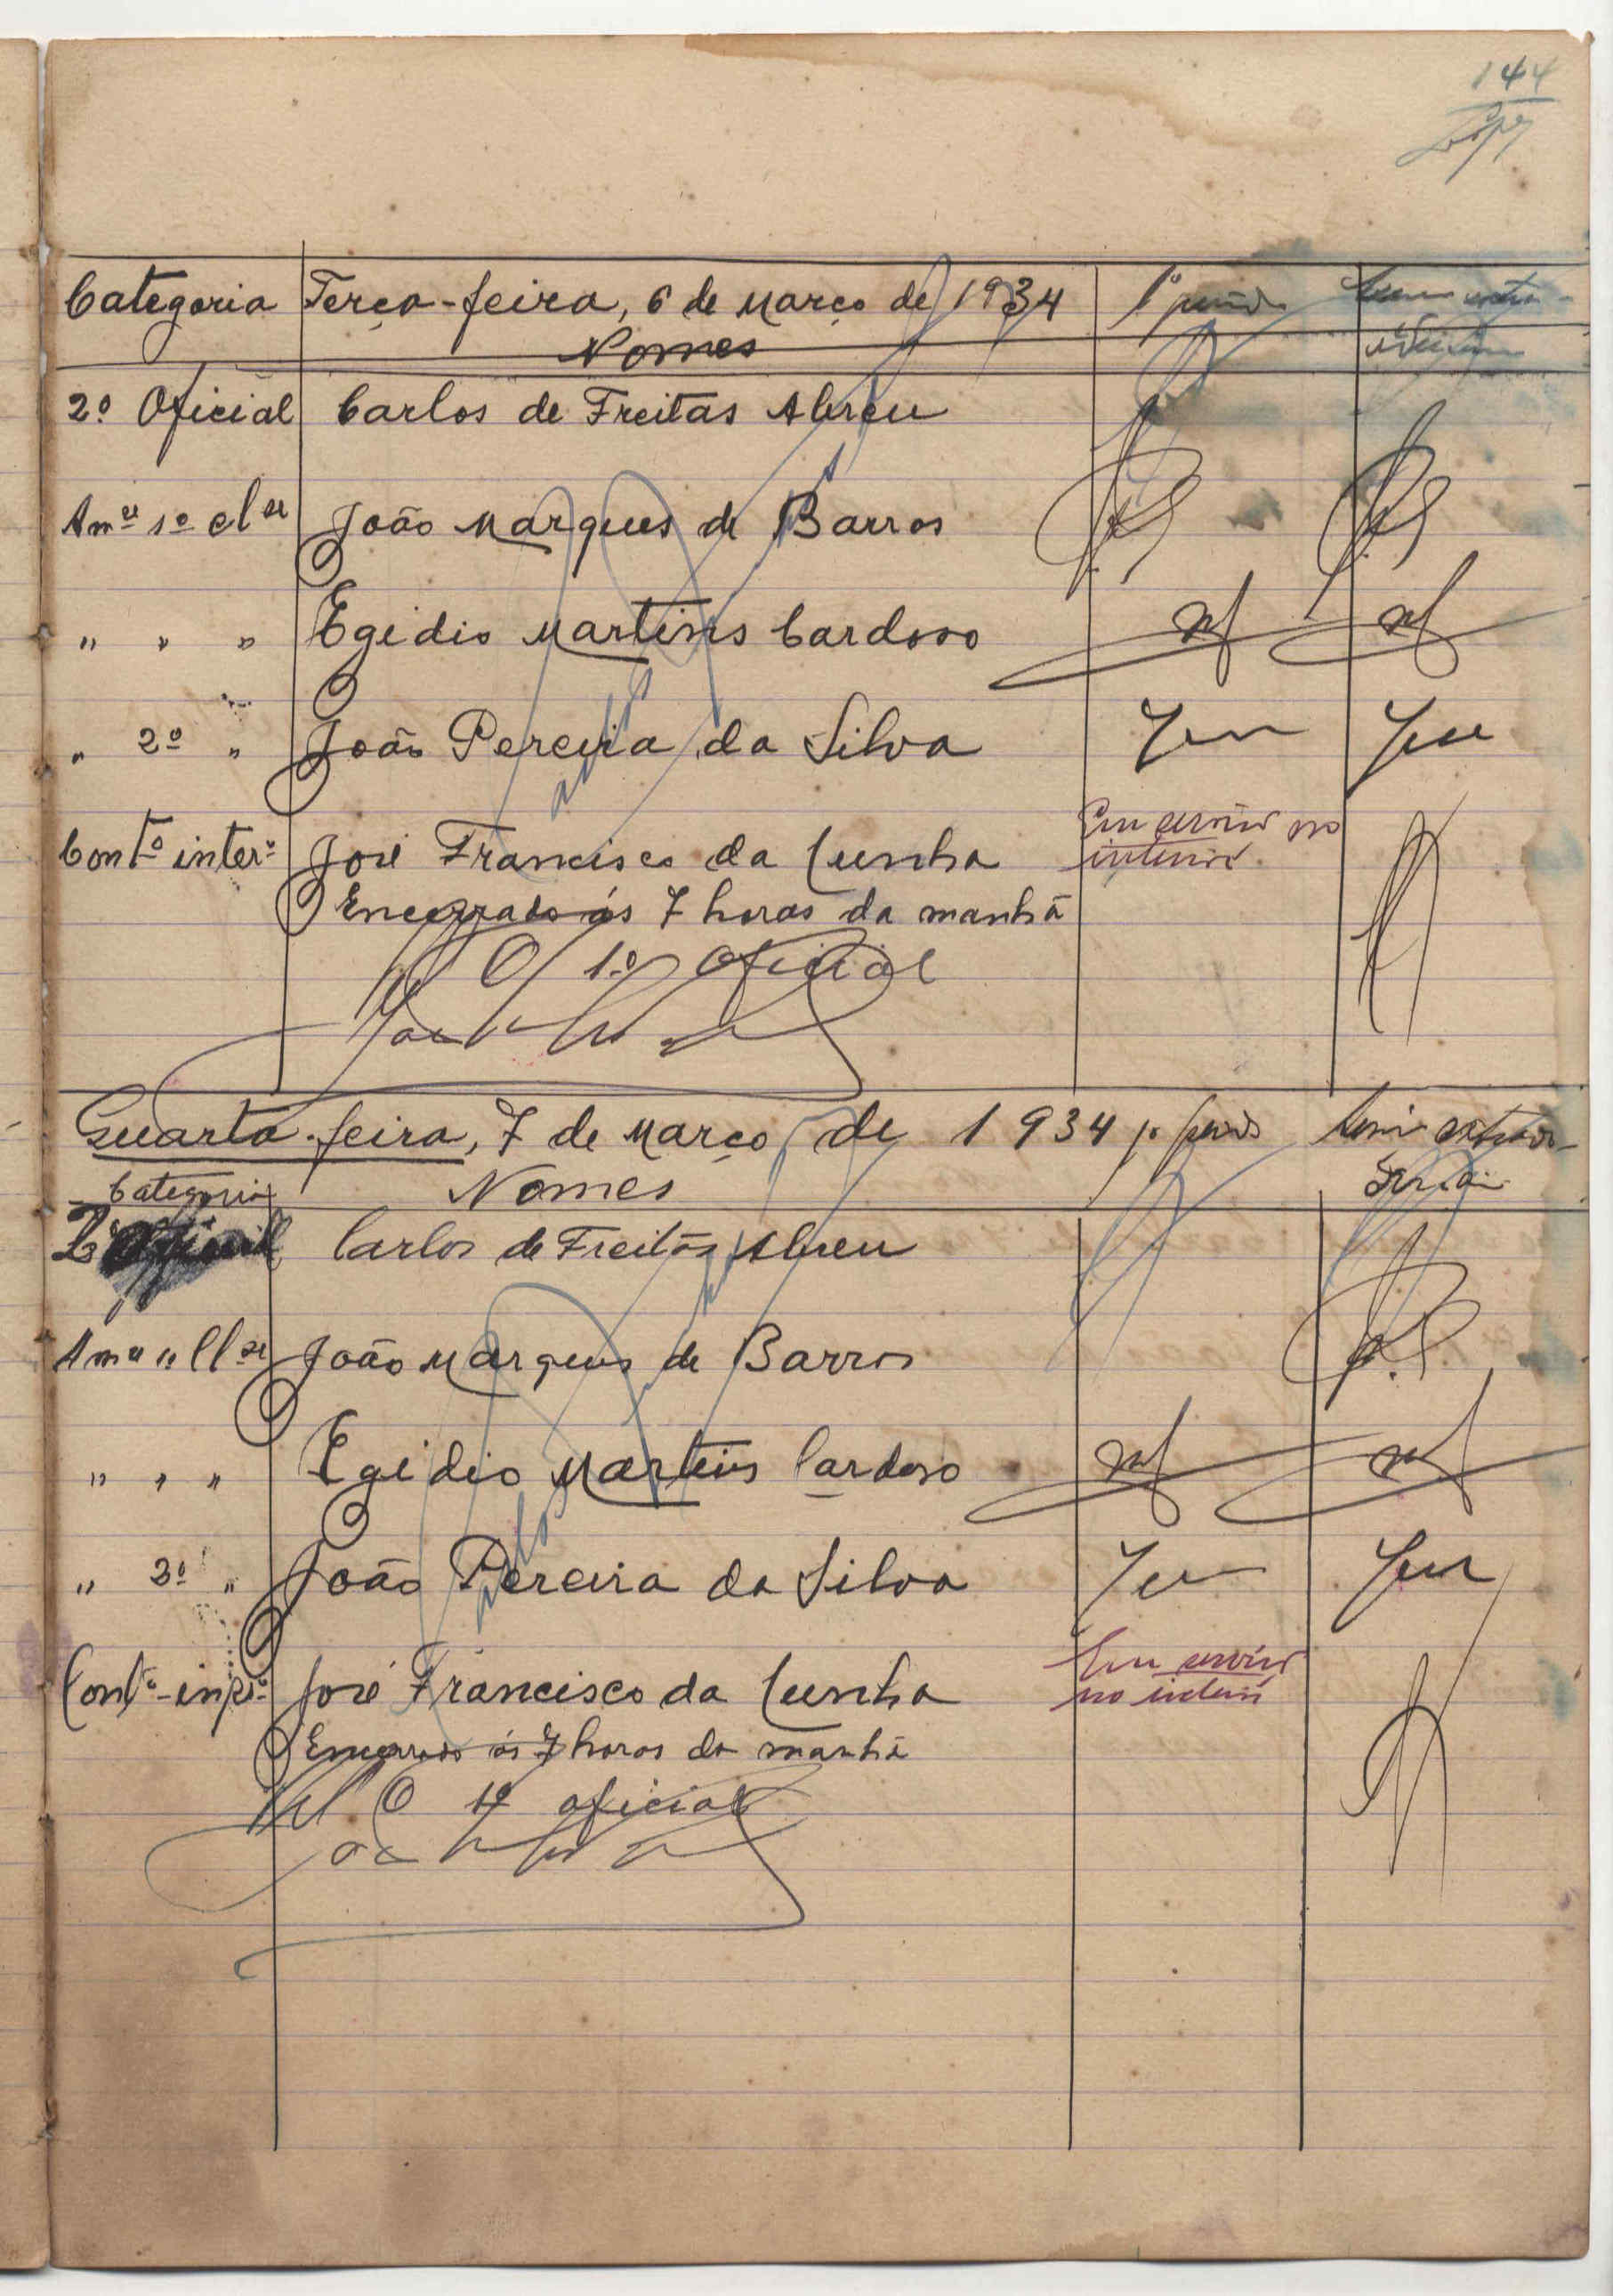 144
Categoria Terça-feira, 6 de Março de 1934 1º período
Nomes
2º Oficial Carlos de Freitas Abreu
Am.es 1ª cl.se João Marques de Barros
" " " Egidio Martins Cardoso
" 2º " João Pereira da Silva
Cont.º inter.º José Francisco da Cunha Em serviço no
interior
Encerrado ás 7 horas da manhã
O 1º Oficial
Quarta-feira, 7 de Março de 1934 1º período
Categoria Nomes
2º Oficial Carlos de Freitas Abreu
João Marques de Barros
" " " Egidio Martins Cardoso
" 2º " João Pereira da Silva
José Francisco da Cunha Em serviço
no interior
Encerrado ás 7 horas da manhã
O 1º oficial